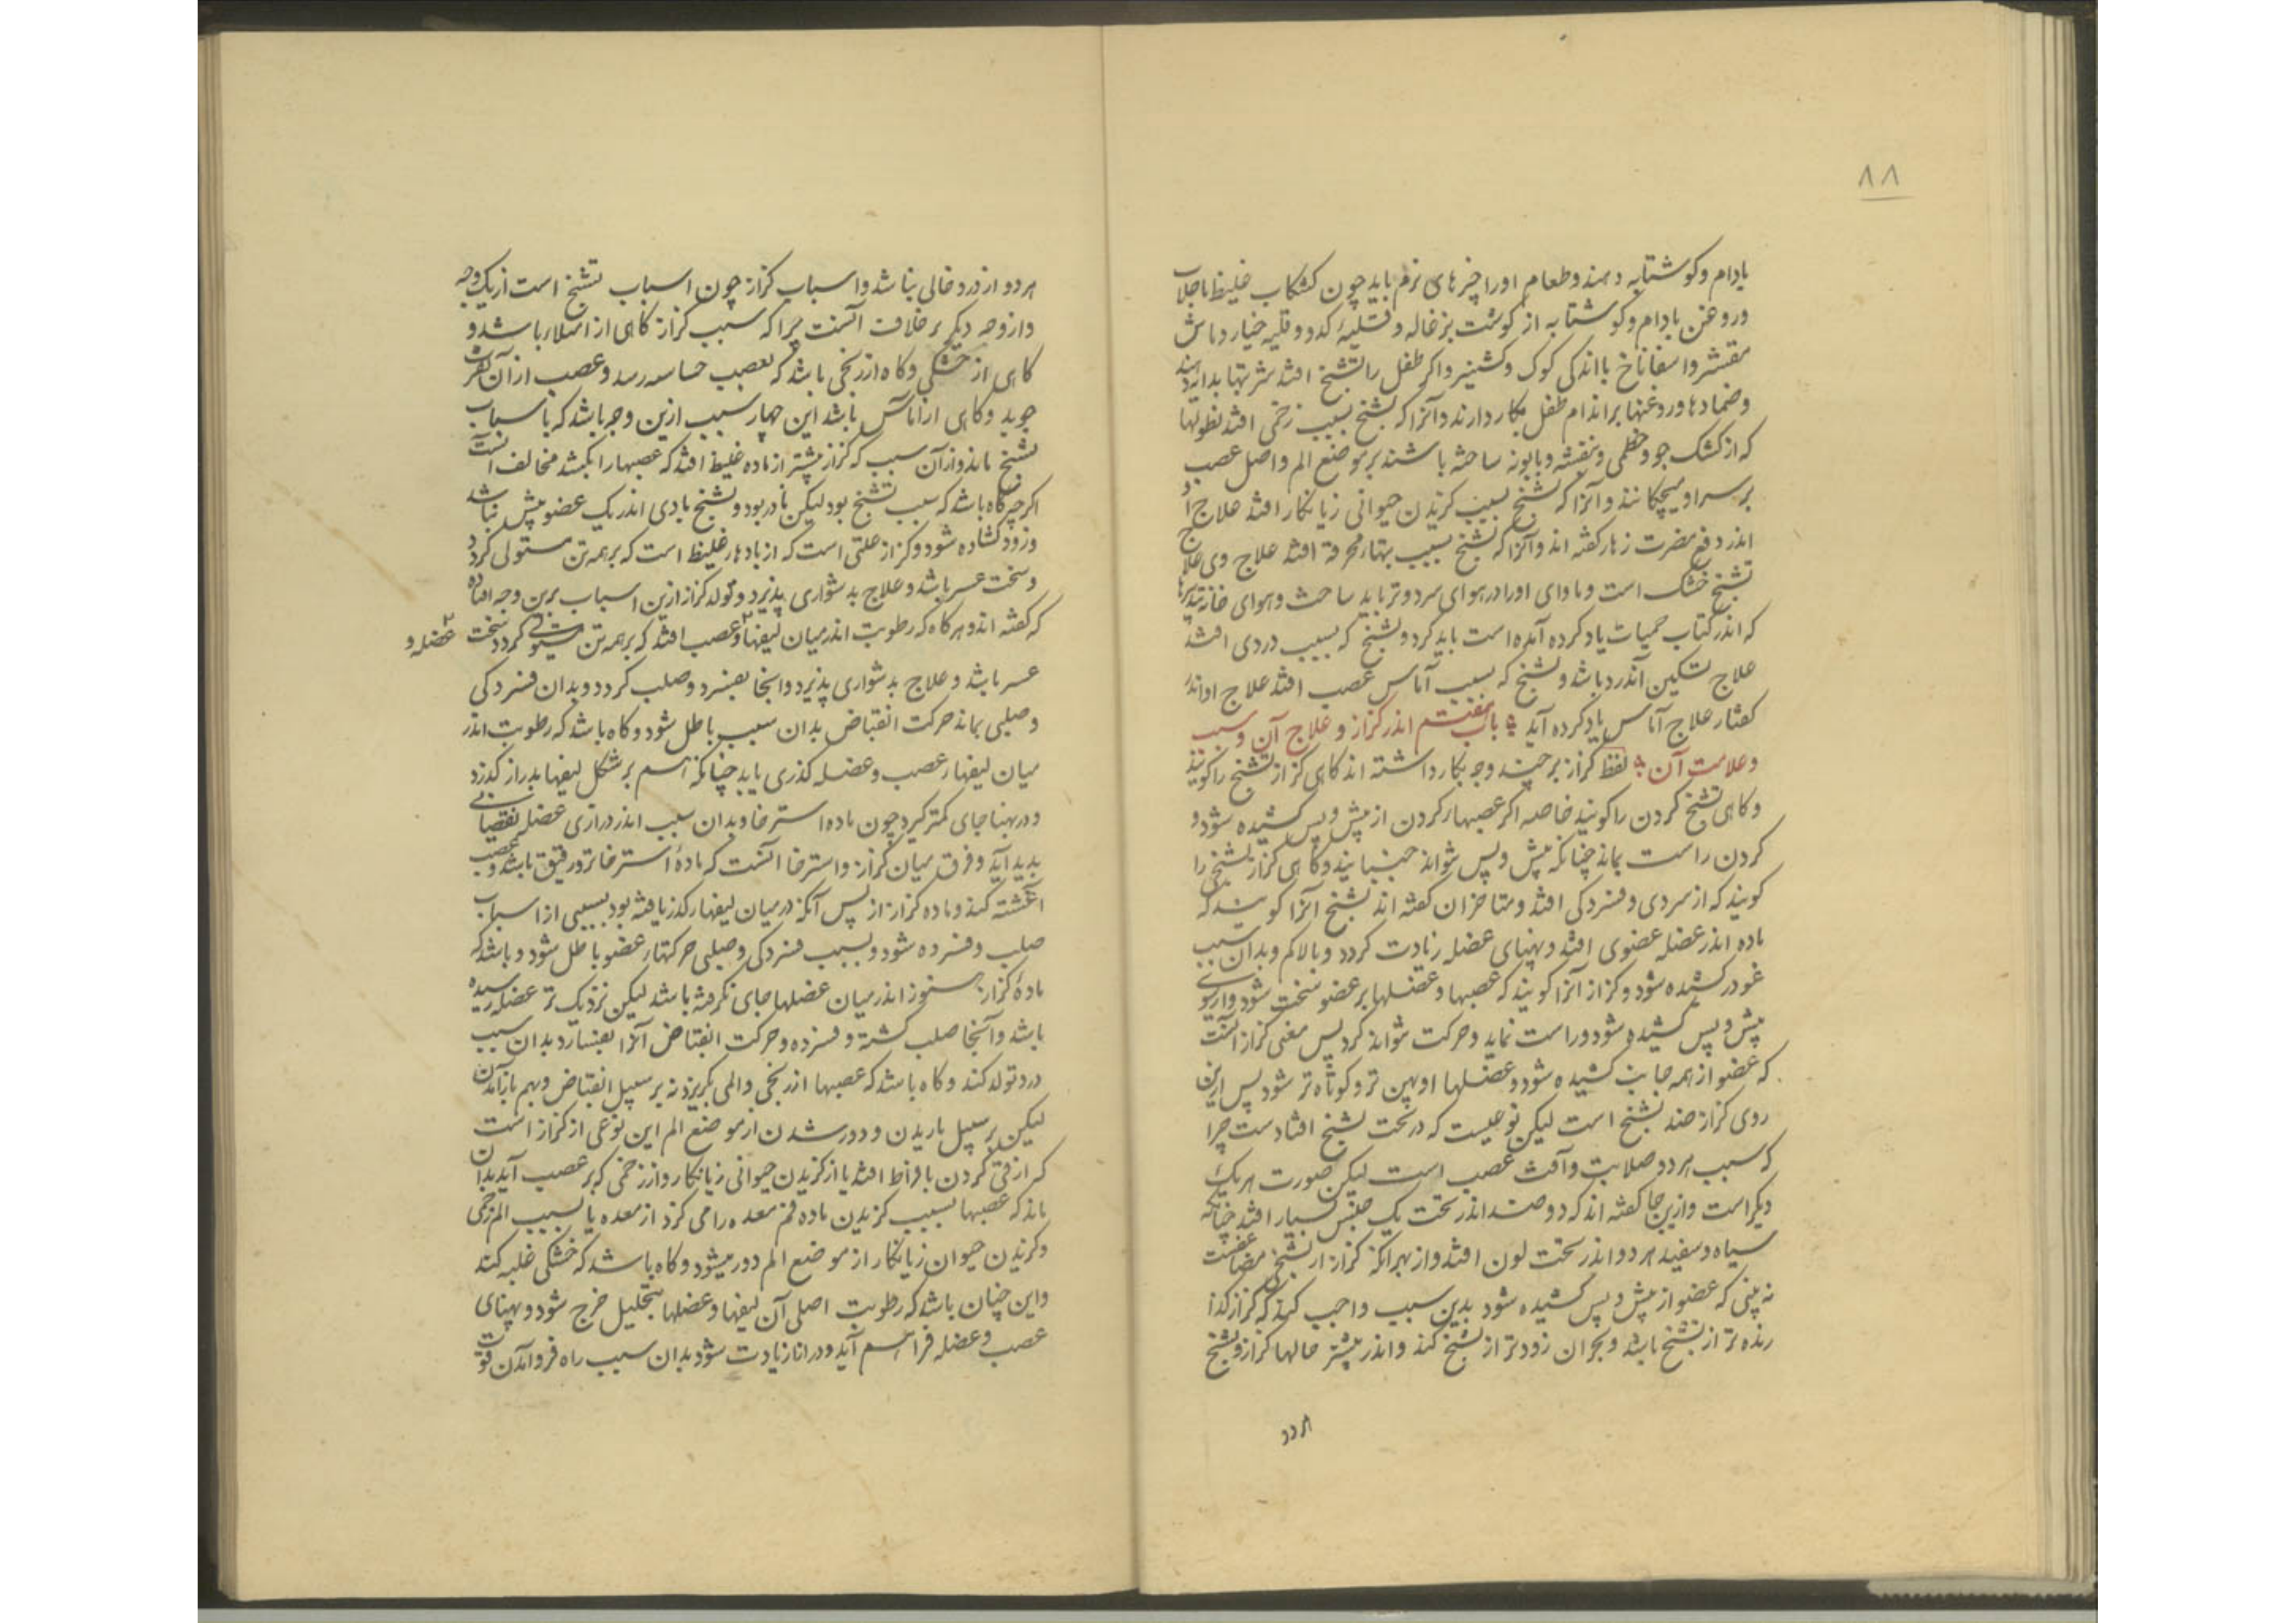 ۸۸
بادام و کوشتابه دهند و طعام او را چیزهای نرم باید چون کشکاب غلیظ با جلاب
و روغن بادام و کوشتابه از کوشت بزغاله و قلیهٔ کدو و قلیه خیار و ماش
مقشر و اسفاناخ با اندکی کوک و کشنیز و اکر طفل را تشنج افتد شربتها بدایه دهند
و ضمادها و روغنها بر اندام طفل بکار دارند و آنرا که تشنج بسبب زخمی افتد نطولها
که از کشک جو و خطمی و بنفشه و بابونه ساخته باشند بر موضع الم و اصل عصب
بر سر او میچکانند و آنرا که تشنج بسبب کزیدن حیوانی زیانکار افتد علاج او
اندر دفع مضرت زهار کفته اند و آنرا که تشنج بسبب تبهاء محرقه افتد علاج وی علاج
تشنج خشک است و ماوای او را در هوای سرد و تر باید ساخت و هوای خانه تدبیرها
که اندر کتاب حمیات یاد کرده آمده است باید کرد و تشنج که بسبب دردی افتد
علاج تسکین آن درد باشد و تشنج که بسبب آماس عصب افتد علاج او اندر
کفتار علاج آماس یاد کرده آید باب هفتم اندر کزاز و علاج آن و سبب
و علامت آن لفظ کزاز بر چند وجه بکار داشته اند کاهی کزاز تشنج را کویند
و کاهی تشنج کردن را کویند خاصه اکر عصبهاء کردن از پیش و پس کشیده شود و
کردن راست بماند چنانکه پیش و پس نتواند جنبانید و کاهی کزاز تشنجی را
کویند که از سردی و فسردکی افتد و متاخران کفته اند تشنج آنرا کویند که
ماده اندر عضله عضوی افتد و پهنای عضله زیادت کردد و بالا کم و بدان سبب
عضو در کشیده شود و کزاز آنرا کویند که عصبها و عضلها بر عضو سخت شود و از سوی
پیش و پس کشیده شود و راست نماید و حرکت نتواند کرد پس معنی کزاز آنست
که عضو از همه جانب کشیده شود و عضلها او پهن تر و کوتاه تر شود پس ازین
روی کزاز ضد تشنج است لیکن نوعیست که در تحت تشنج افتادست چرا
که سبب هر دو صلابت و آفت عصب است لیکن صورت هر یک
دیکر است و ازین جا کفته اند که دو ضد اندر تحت یک جنس بسیار افتد چنانکه
سیاه و سفید هر دو اندر تحت لون افتد و از بهر آنکه کزاز از تشنج مضاعفست
نه بینی که عضو از پیش و پس کشیده شود بدین سبب واجب کند که کزاز کذا
رنده تر از تشنج باشد و بحران زودتر از تشنج کند و اندر بیشتر حالها کزاز و تشنج
هر دو
هر دو از درد خالی نباشد و اسباب کزاز چون اسباب تشنج است از یک وجه
و از وجه دیکر بر خلاف آنست چرا که سبب کزاز کاهی از امتلا باشد و
کاهی از خشکی و کاه از رنجی باشد که بعصب حساسه رسد و عصب از آن نفرت
جوید و کاهی از آماس باشد این چهار سبب ازین وجه باشد که باسباب
تشنج ماند و از آن سبب که کزاز بیشتر از ماده غلیظ افتد که عصبها را بکشد مخالف آنست
اکرچه کاه باشد که سبب تشنج بود لیکن نادر بود و تشنج بادی اندر یک عضو بیش نباشد
و زود کشاده شود و کزاز علتی است که از بادهاء غلیظ است که بر همه تن مستولی کردد
و سخت عسر باشد و علاج بدشواری پذیرد و تولد کزاز ازین اسباب برین وجه افتاده
که کفته اند و هر کاه که رطوبت اندر میان لیفها و عصب افتد که بر همه تن مستولی کردد سخت
عضله و
عسر باشد و علاج بدشواری پذیرد و آنجا بفسرد و صلب کردد و بدان فسردکی
و صلبی بماند حرکت انقباض بدان سبب باطل شود و کاه باشد که رطوبت اندر
میان لیفهاء عصب و عضله کذری یابد چنانکه هم بر شکل لیفها بدراز کذرد
و در پهنا جای کمتر کیرد چون ماده استرخا و بدان سبب اندر درازی عضله نقصانی
پدید آید و فرق میان کزاز و استرخا آنست که مادهٔ استرخا تر و رقیق باشد و عصب
آغشته کند و ماده کزاز از پس آنکه در میان لیفهاء کذر یافته بود بسببی از اسباب
صلب و فسرده شود و بسبب فسردکی و صلبی حرکتهاء عضو باطل شود و باشد که
مادهٔ کزاز هنوز اندر میان عضلها جای نکرفته باشد لیکن نزدیک تر عضله رسیده
باشد و آنجا صلب کشته و فسرده و حرکت انقباض آنرا بفشارد بدان سبب
درد تولد کند و کاه باشد که عصبها از رنجی و المی بکریزد نه بر سبیل انقباض و بهم باز آمدن
لیکن بر سبیل باریدن و دور شدن از موضع الم این نوعی از کزاز است
که از قی کردن بافراط افتد یا از کزیدن حیوانی زیانکار و از زخمی که بر عصب آید بدان
ماند که عصبها بسبب کزیدن ماده فم معده را می کزد از معده یا بسبب الم زخمی
و کزیدن حیوان زیانکار از موضع الم دور میشود و کاه باشد که خشکی غلبه کند
و این چنان باشد که رطوبت اصلی آن لیفها و عضلها بتحلیل خرج شود و پهنای
عصب و عضله فراهم آید و درازنا زیادت شود بدان سبب راه فرو آمدن قوت